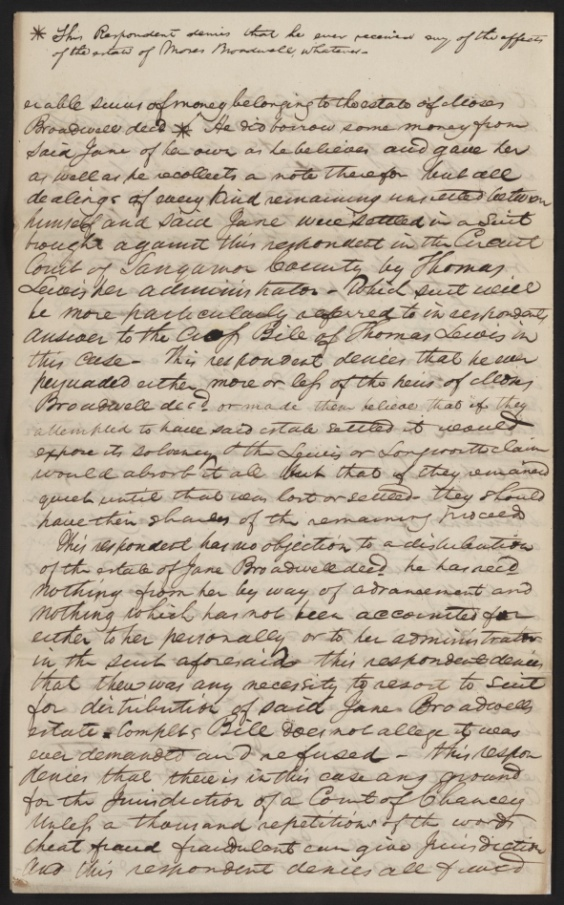 * This Respondent denies that he ever received any of the effects
of the estate of Moses Broadwell, whatever.
erable sums of money belonging to the estate of Moses
Broadwell decd * He did borrow some money from
said Jane of her own as he believes and gave her
as well as he recollects a note therefor but all
dealings of every kind remaining unsettled between
himself and said Jane were settled in a Suit
brought against this respondent in the Circuit
Court of Sangamon County by Thomas
Lewis her administrator - Which suit will
be more particularly referred to in respondents
answer to the Bill of Thomas Lewis in
this case - This respondent denies that he ever
persuaded either more or less of the heirs of Moses
Broadwell decd or made them believe that if they
attempted to have said estate settled it would
expose its solvency & the Lewis or Longworth claim
would absorb it all but that if they remained
quiet until that was lost or settled they should
have their shares of the remaining proceed
This respondent has no objection to a distribution
of the estate of Jane Broadwell decd he has recd
nothing from her by way of advancement and
nothing which has not been accounted for
either to her personally or to her administrator
in the suit aforesaid this respondent denies
that there was any necessity to resort to Suit
for distribution of said Jane Broadwells
estate. Complts Bill does not allege it was
ever demanded and refused - this respon
denies that there is in this case any ground
for the Jurisdiction of a Court of Chancery
Unless a thousand repetitions of the words
cheat fraud fraudulent can give Jurisdiction
and this respondent denies all fraud